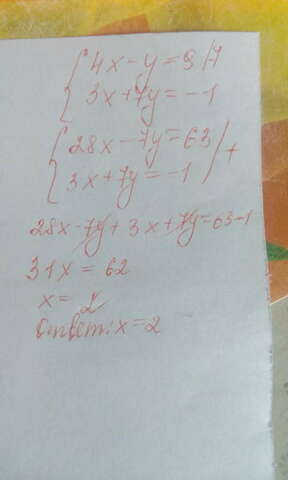 4x-y=9 |7
3x+7y=-1
28x-7y=63 | +
3x+7y=-1
28x-7y+3x+7y=63-1
31x=62
x=2
Ответ: x=2